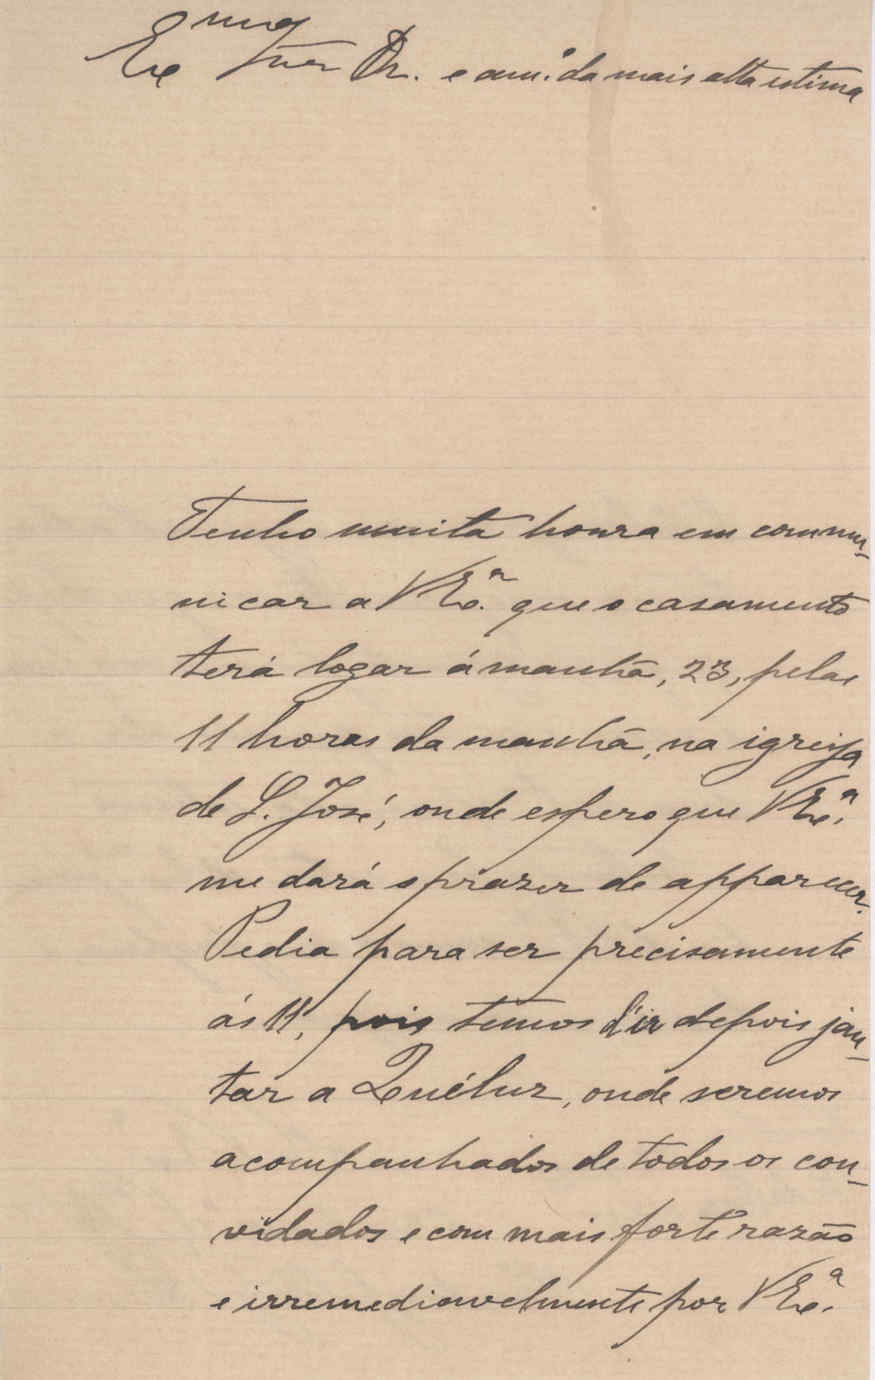 Exmo Snr Dr. e am.º da mais alta estima
Tenho muita honra em commu-
nicar a V. Exª. que o casamento
terá logar á manhã, 23, pelas
11 horas da manhã, na igreija
de S. José, onde espero que V. Exª.
me dará o prazer de apparecer.
Pedia para ser precisamente
ás 11, pois temos d'ir depois jan-
tar a Quéluz, onde seremos
acompanhados de todos os con-
vidados e com mais forte razão
e irremediavelmente por V. Exª.